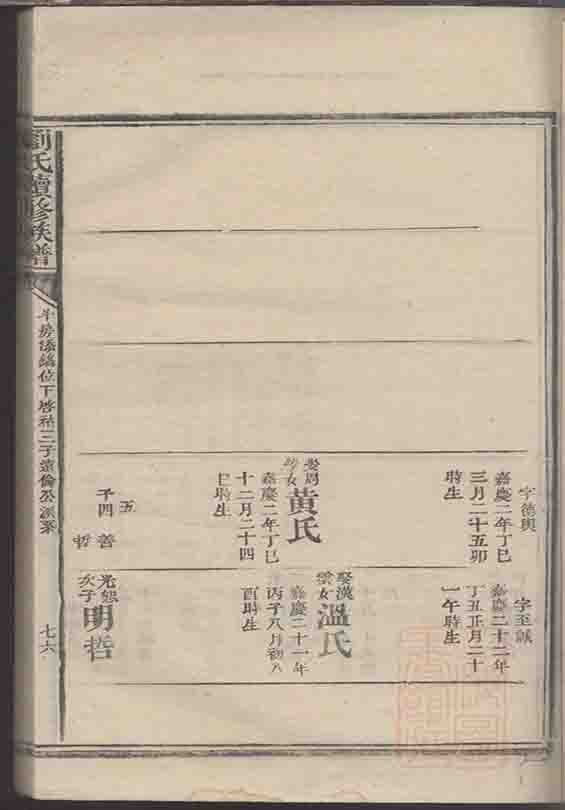 字德輿
嘉慶二年丁巳
三月二十五卯
時生
娶周
女
黄氏
嘉慶二年丁巳
十二月二十四
巳時生
五
子四
善
哲
字至誠
嘉慶二十二年
丁丑正月二十
一午時生
娶漢
雲女
溫氏
嘉慶二十一年
丙子八月初八
酉時生
光
次子
明哲
劉氏續修族譜
位下啓
三子遠倫公派系
七六